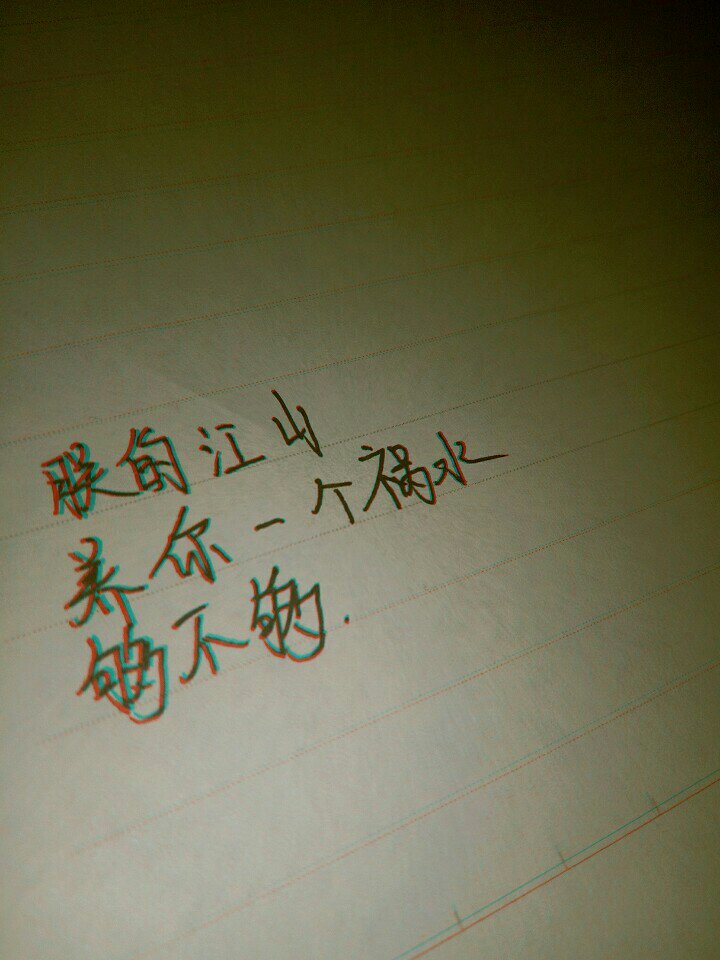 朕的江山
养你一个祸水
够不够.